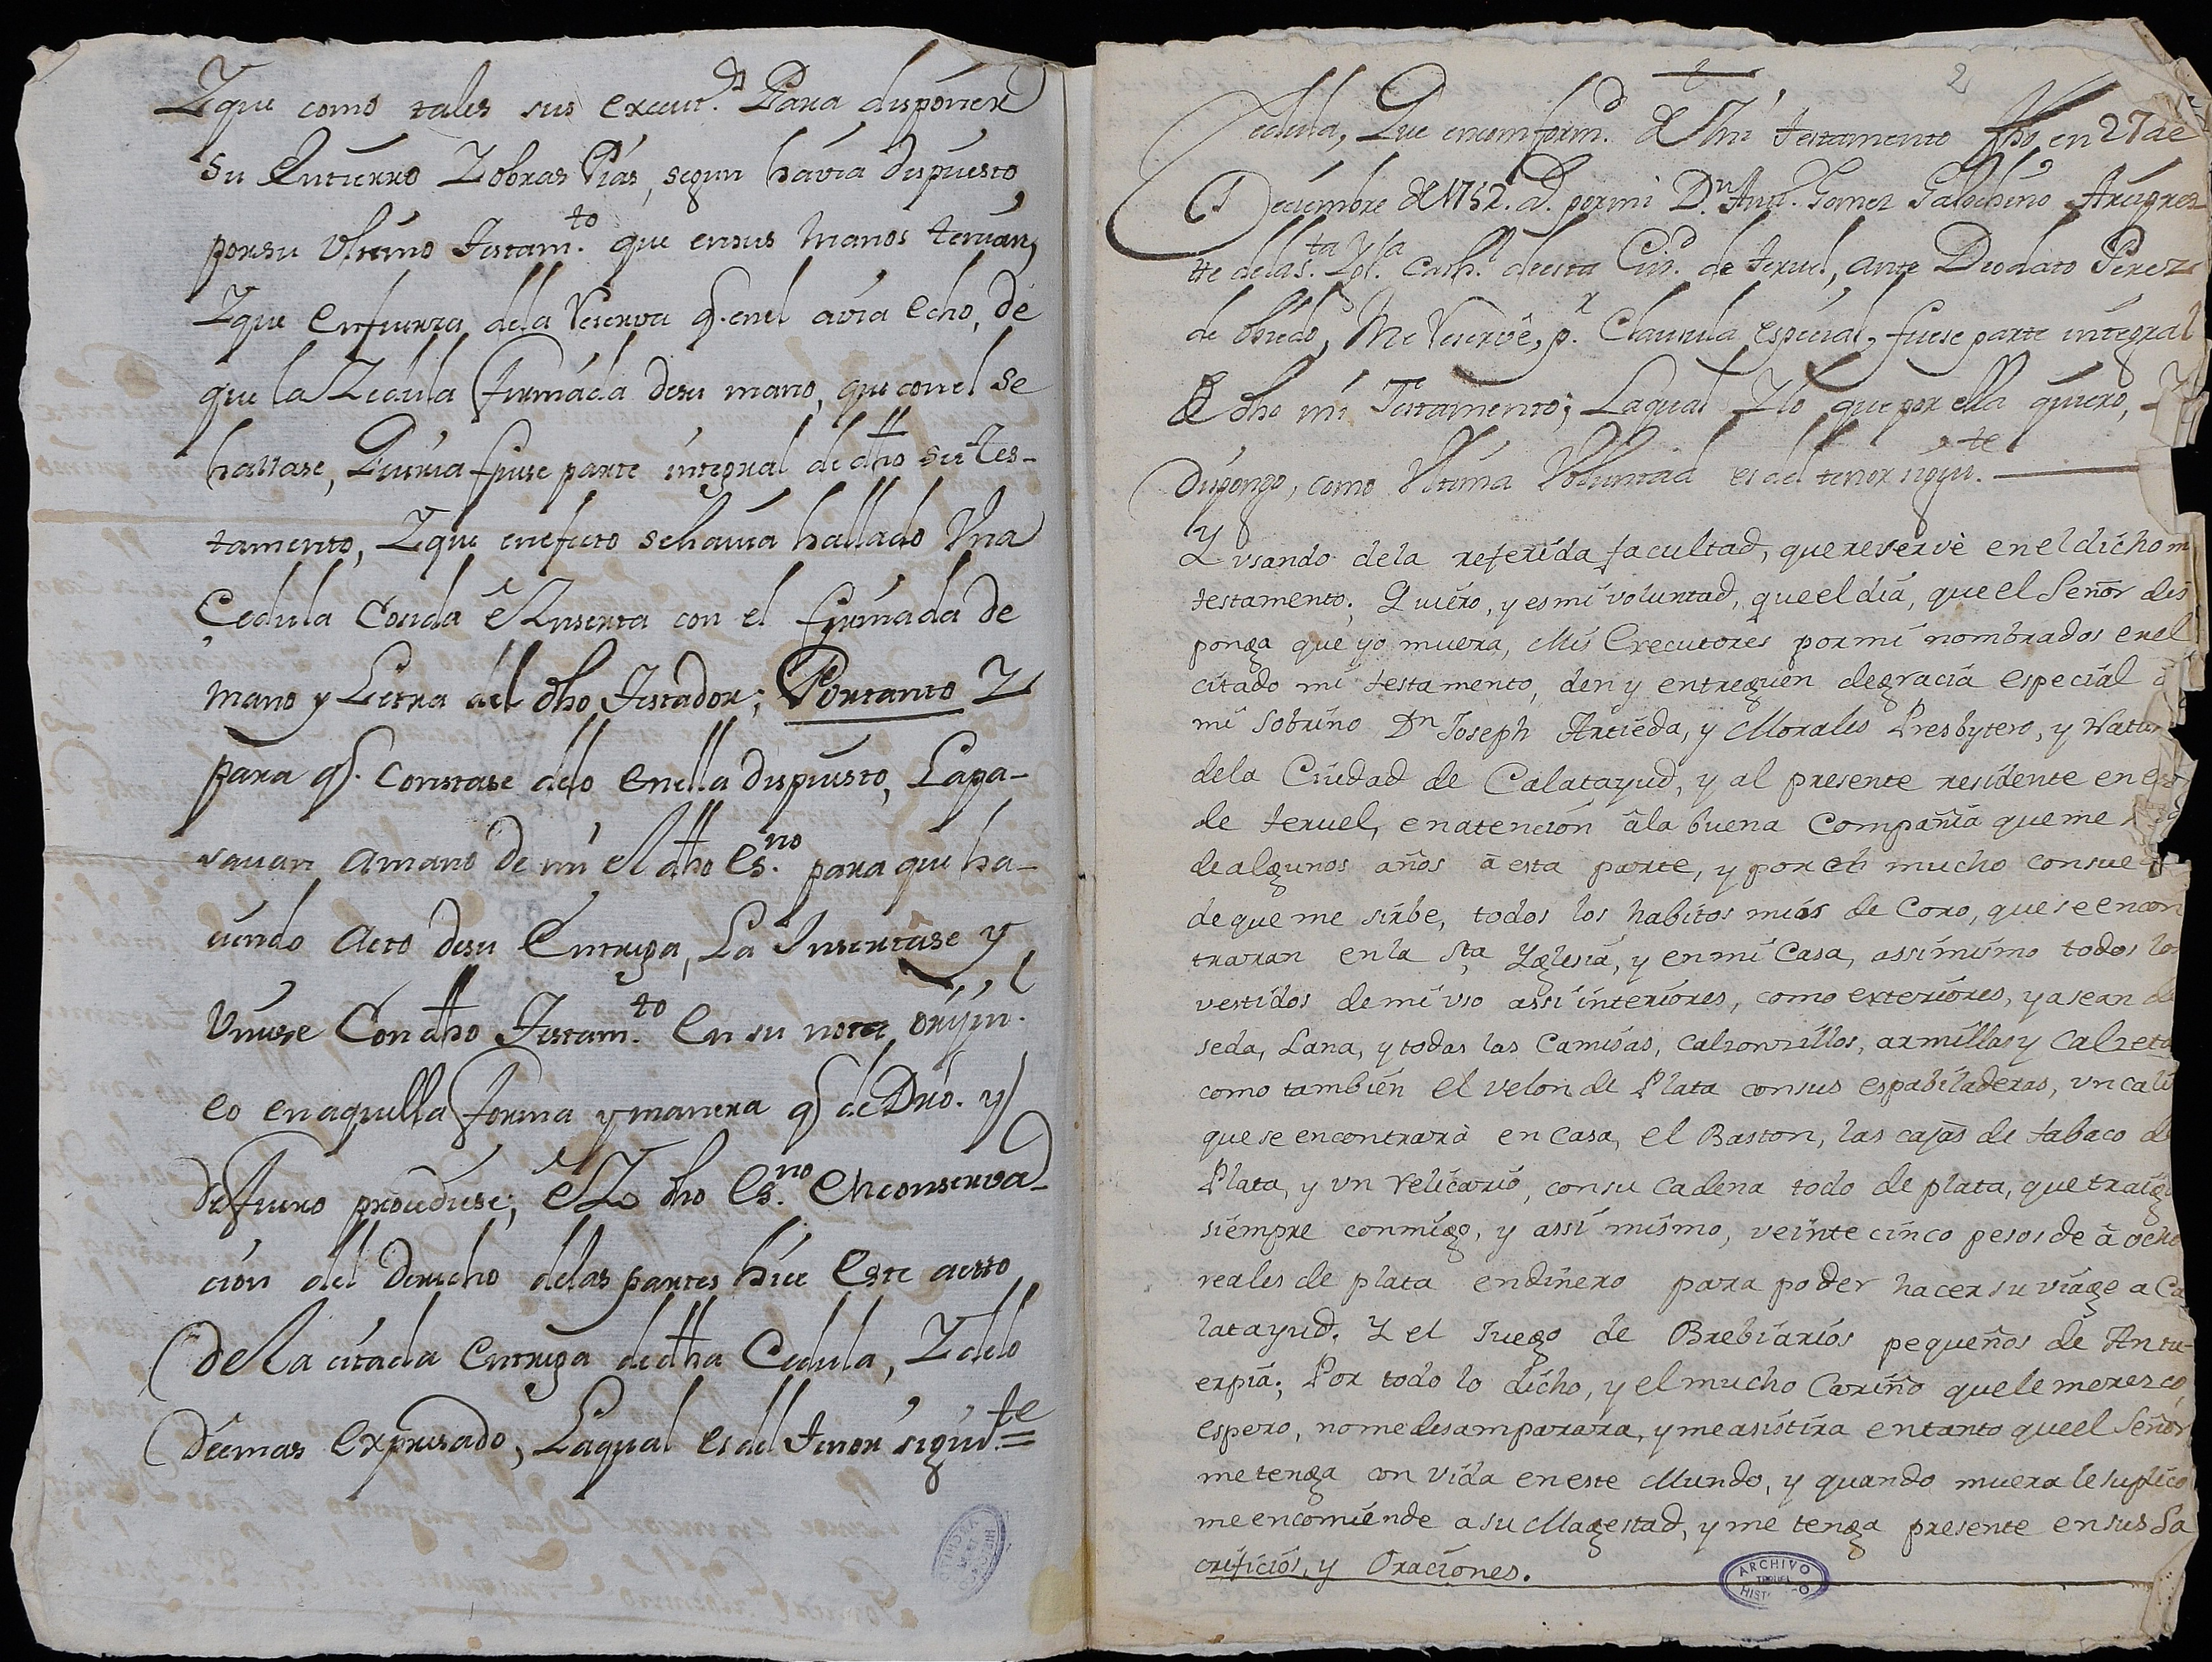 Y que como tales sus execut.s Para disponer
su Entierro Y obras Pias, segun havia dispuesto
por su Ultimo Testam.to que en sus Manos tenian,
Y que en fuerza dela Reserva q. en el avia echo, de
que la Zedula firmada desu mano, que con el se
hallase, Queria fuese parte integral de dho su Tes-
tamento, Y que en efecto se havia hallado Una
Cedula Cosida è Inserta con el firmada de
mano y Letra del dho Testador; Portanto Y
para q. Constase delo en ella dispuesto, La pa-
savan amano de mi el dho Es.no para que ha-
ciendo Acto desu Entrega, La Insertàse y
Uniese Con dho Testam.to En su nota orijin.l
eo en aquella forma y manera q de Dro. y
de fuero procediese; è Yo dho Es.no En conserva-
cion del Derecho delas partes hice Este acto
De la citada Entrega de dha Cedula, Y delo
Demas Expresado, Laqual es del tenor siguie.te =
2
Cedula, Que en comform.d de Mi testamento fho en 27 de
Deciembre de 1752. ad. por mi D.n Ant. Gomez Galochino Arcipres-
te dela s.ta Ygl.a Cath.l de esta Ciu.d de teruel, ante Deodato Perez
de Obiedo, Me Reservè, p.r Clausula especial, fuese parte integral
de dho mi Testamento; Laqual Y lo que por ella quiero, Y
Dispongo, como Ultima Voluntad es del tenor siguie.te
Y usando dela referida facultad, que reservè en el dicho m
testamento. Quiero, y es mi voluntad, que el dia, que el Señor dis
ponga que yo muera, Mis Executores por mi nombrados en el
citado mi testamento, den y entreguen degracia especial à
mi sobrino Dn Joseph Artieda, y Morales Presbytero, y Natur
dela Ciudad de Calatayud, y al presente residente en es
de teruel, en atencion âla buena Compañia que me
de algunos años à esta parte, y por el mucho consue
de que me sirbe, todos los habitos mios de Coro, que se encon
traran en la Sta Yglesia, y en mi Casa, assimismo todos los
vestidos de mi uso assi interiores, como exteriores, ya sean de
seda, Lana, y todas las Camisas, Calzonzillos, armillas y Calzeta
como tambien el velon de Plata con sus espabiladeras, un cali
que se encontrarà en Casa, el Baston, las cajas de tabaco de
Plata, y un Relicario, con su Cadena todo de plata, que traigo
siempre conmigo, y assi mismo, veinte cinco pesos de à ocho
reales de plata en dinero para poder hacer su viage a Ca
latayud. Y el Juego de Brebiarios pequeños de Antu-
erpia; Por todo lo dicho, y el mucho Cariño que le merezco
espero, no me desampararà, y me asistira en tanto que el Señor
me tenga con vida en este Mundo, y quando muera le suplico
me encomiende a su Magestad, y me tenga presente en sus Sa
crificios, y Oraciones.
ARCHIVO
TERUEL
HISTÓRICO